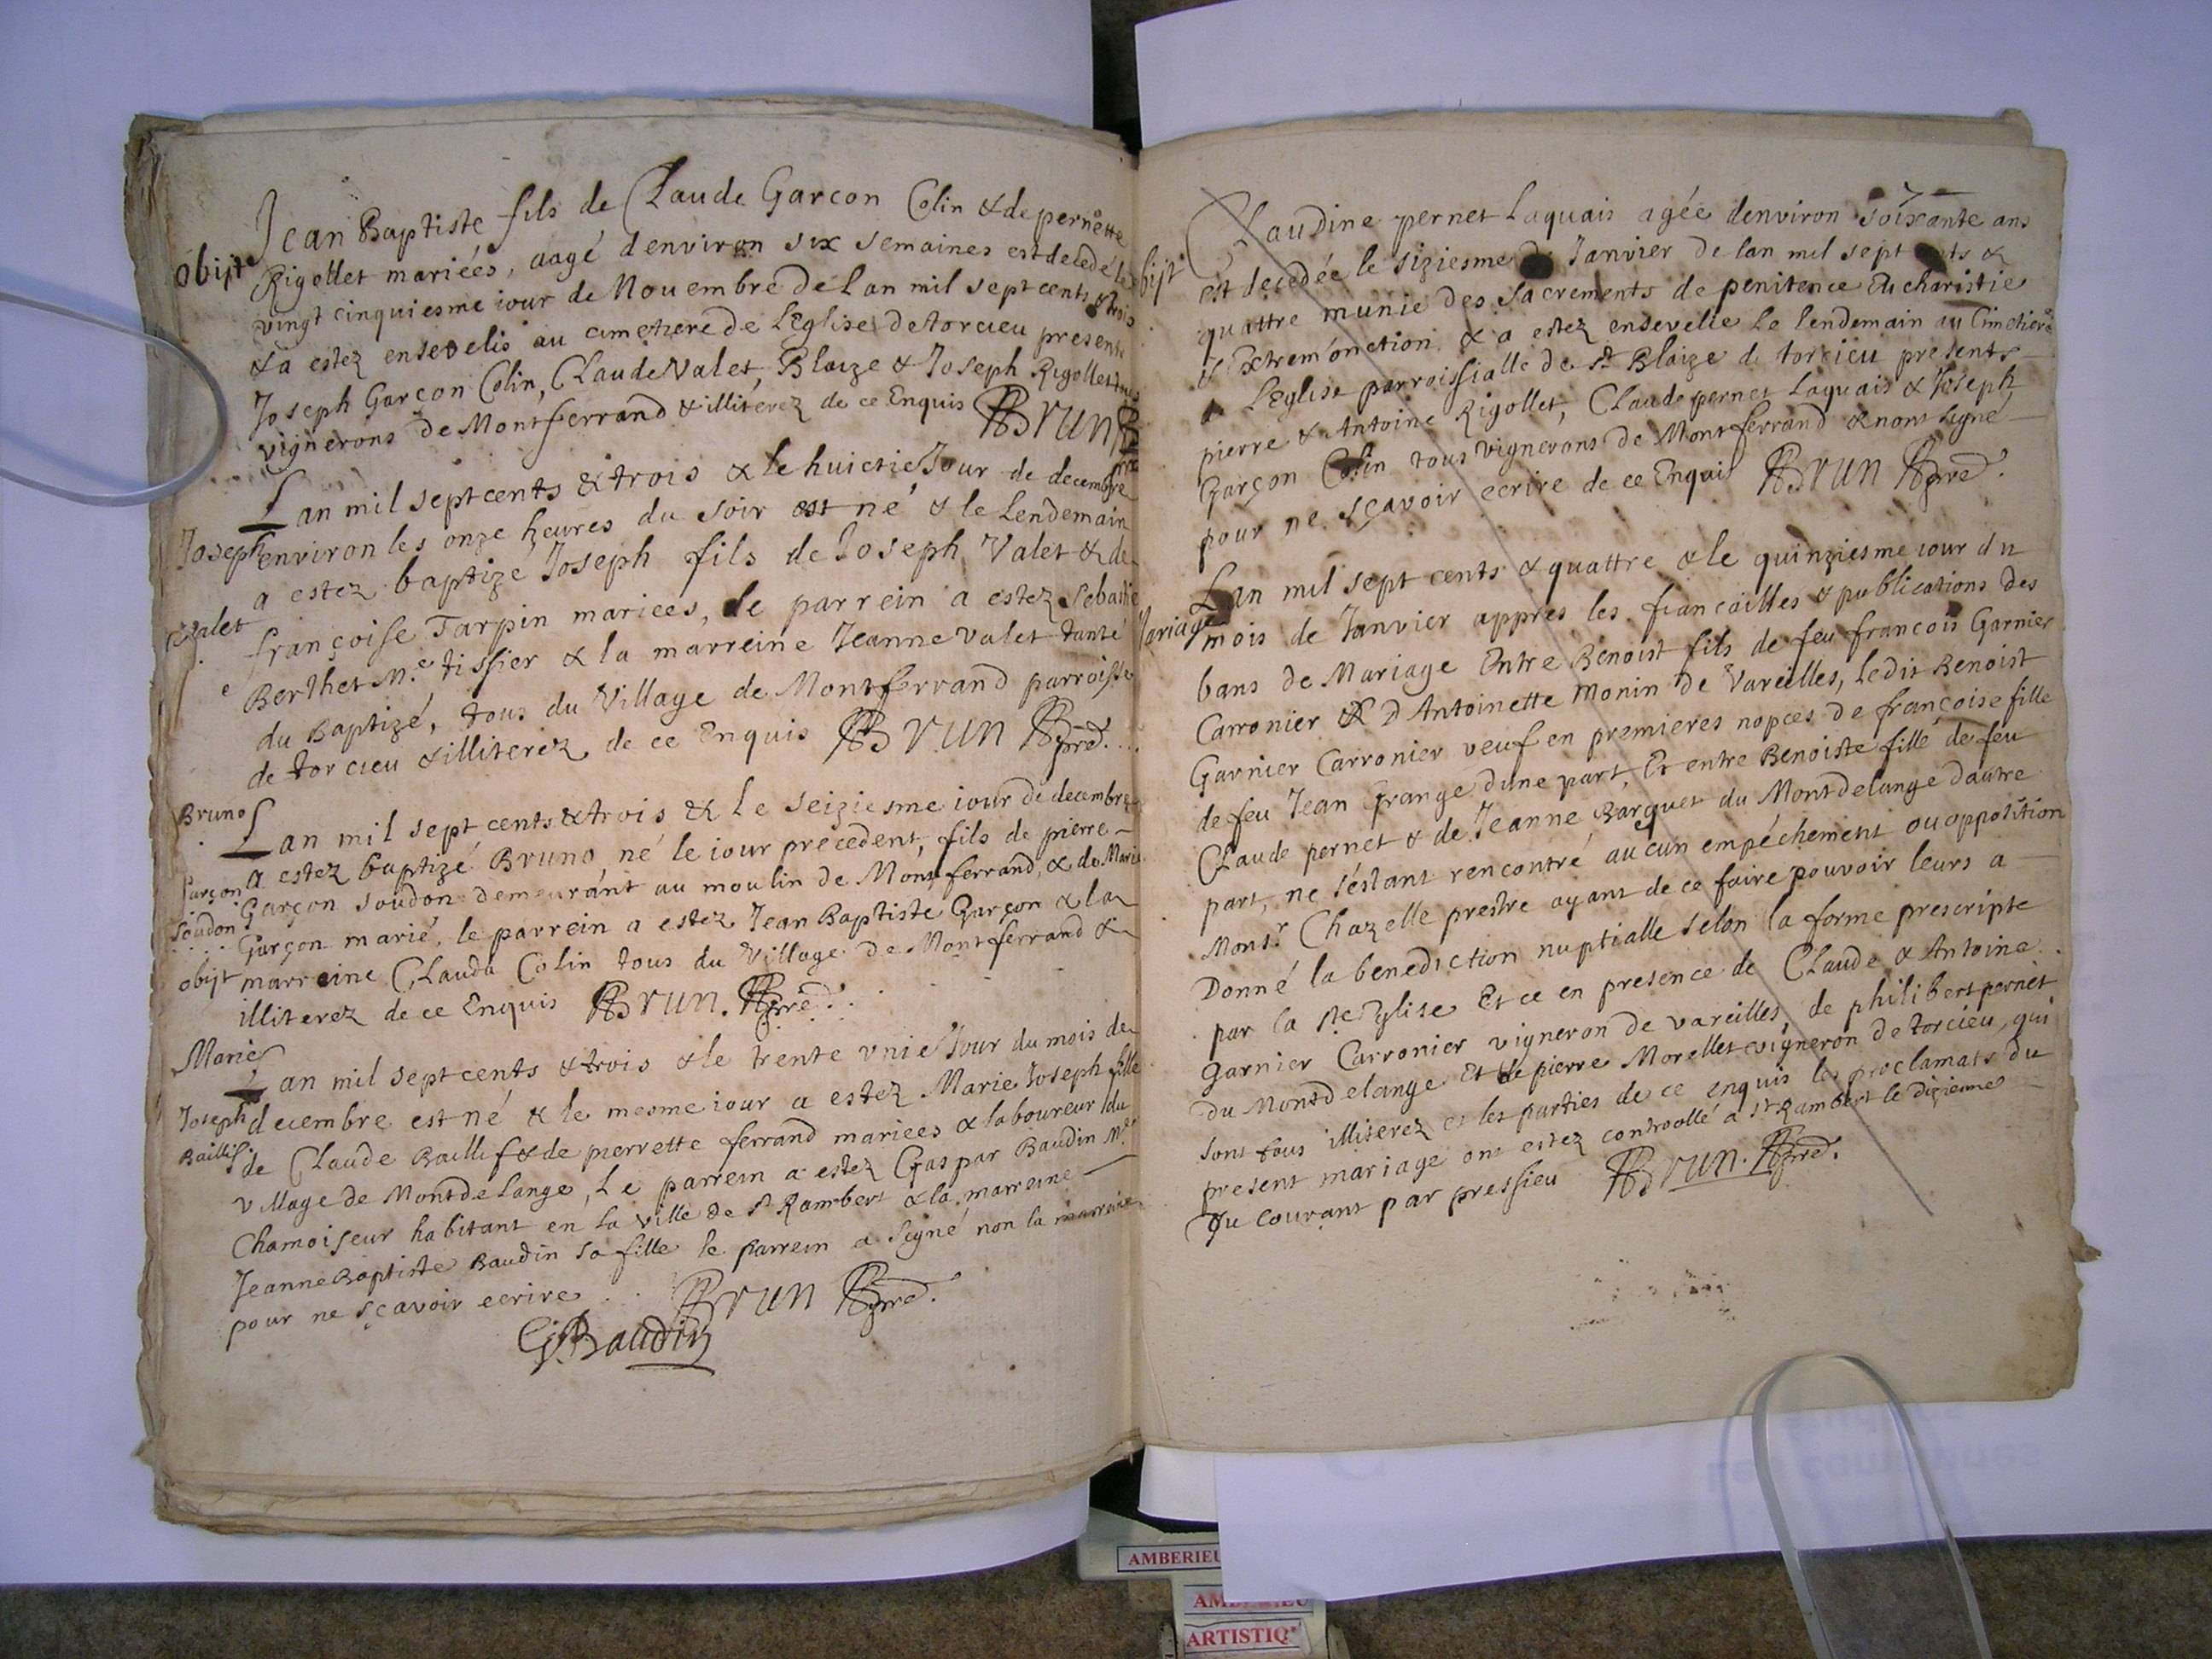 Jean Baptiste fils de Claude Garcon Colin & de pernette
obijt Rigollet mariées, aagé denviron six semaines est decedé le
vingt cinquiesme iour de Nouembre de Lan mil sept cents & trois
& a estez ensevelis au cimetiere de L'Eglise de torcieu presents
Joseph Garçon Colin, Claude Valet, Blaize & Joseph Rigollet tous
vignerons de Montferrand & illiterez de ce Enquis Brun
Lan mil sept cents & trois & le huictie Jour de decembre
Joseph environ les onze heures du soir est né & le Lendemain
a estez baptizé Joseph fils de Joseph Valet & de
Valet françoise Tarpin mariees, le parrein a estez Sebastie
Berthet Me tissier & la marreine Jeanne Valet tante
du Baptizé, tous du Village de Montferrand parroisse
de torcieu & illiterez de ce Enquis Brun pre.
Bruno Lan mil sept cents & trois & le seiziesme iour de decembre
a estez baptizé Bruno né le iour precedent, fils de pierre
Garçon Garçon soudon demeurant au moulin de Montferrand, & de Marie
soudon Garçon marié, le parrein a estez Jean Baptiste Garçon & la
obijt marreine Clauda Colin tous du Village de Montferrand &
illiterez de ce Enquis Brun. pre.
Marie Lan mil sept cents & trois & le trente vnie Jour du mois de
Joseph decembre est né & le mesme iour a estez Marie Joseph fille
Baillif de Claude Baillif & de pierrette ferrand mariees & laboureur du
village de Montdelange, Le parrein a estez Gaspar Baudin Me
Chamoiseur habitant en la ville de St Rambert & la marreine
Jeanne Baptiste Baudin sa fille le parrein a signé non la marreine
pour ne sçavoir ecrire Brun pre.
G Baudin
Claudine pernet Laquais agée denviron soixante ans
bijt est decedée le siziesme Janvier de lan mil sept &
quattre munie des Sacrements de penitence Eucharistie
& Extrem'onction & a estez ensevelie le lendemain au Cimetiere
a L'Eglise parroissialle de St Blaize de torcieu presents
pierre & Antoine Rigollet, Claude pernet Laquais & Joseph
Garçon Colin tous vignerons de Montferrand & nont signé
pour ne sçavoir ecrire de ce Enquis Brun pre.
Lan mil sept cents & quattre & le quinziesme iour du
Mariage mois de Janvier appres les fiancailles & publications des
bans de Mariage Entre Benoist fils de feu francois Garnier
Carronier & D'Antoinette Monin de Vareilles, ledit Benoist
Garnier Carronier veuf en premieres nopces de françoise fille
de feu Jean Grange dune part, Et entre Benoiste fille de feu
Claude pernet & de Jeanne Barquet du Montdelange dautre
part, ne s'estant rencontré aucun empéchement ou opposition
Monsr Chazelle prestre ayant de ce faire pouvoir leurs a
Donné la benediction nuptialle selon la forme prescripte
par la Ste Eglise Et ce en presence de Claude & Antoine
Garnier Carronier vigneron de vareilles, de philibert pernet
du Montdelange Et de pierre Morellet vigneron de torcieu, qui
sont tous illiterez et les parties de ce enquis les proclamats du
present mariage ont estez controollé a St Rambert le dizieme
du Courant par pressieu Brun. pre.
AMBERIEU
ARTISTIQ